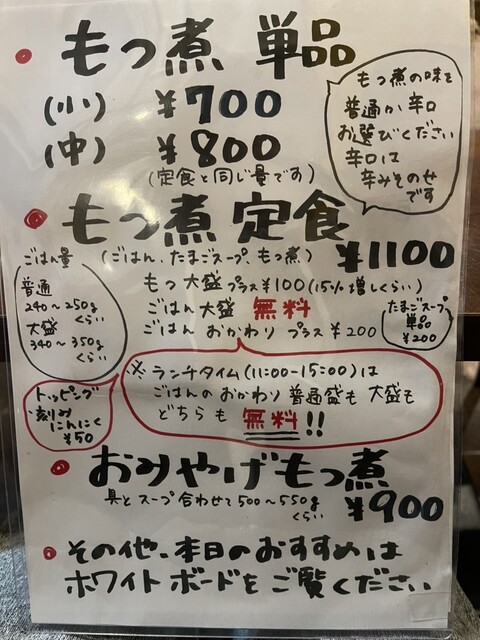 もつ煮 単品
(小) ¥700
(中) ¥800
(定食と同じ量です)
もつ煮の味を
普通か辛口
お選びください
辛口は
辛みそのせ
です
もつ煮 定食
(ごはん、たまごスープ、もつ煮) ¥1100
もつ大盛 プラス¥100(15%増しくらい)
ごはん大盛 無料
ごはん おかわり プラス¥200
たまごスープ
単品
¥200
ごはん量
普通
240〜250g
くらい
大盛
340〜350g
くらい
※ランチタイム(11:00-15:00)は
ごはんのおかわり 普通盛も 大盛も
どちらも 無料!!
トッピング
刻み
にんにく
¥50
おみやげもつ煮
具とスープ合わせて500〜550g
くらい
¥900
その他、本日のおすすめは
ホワイトボードをご覧ください